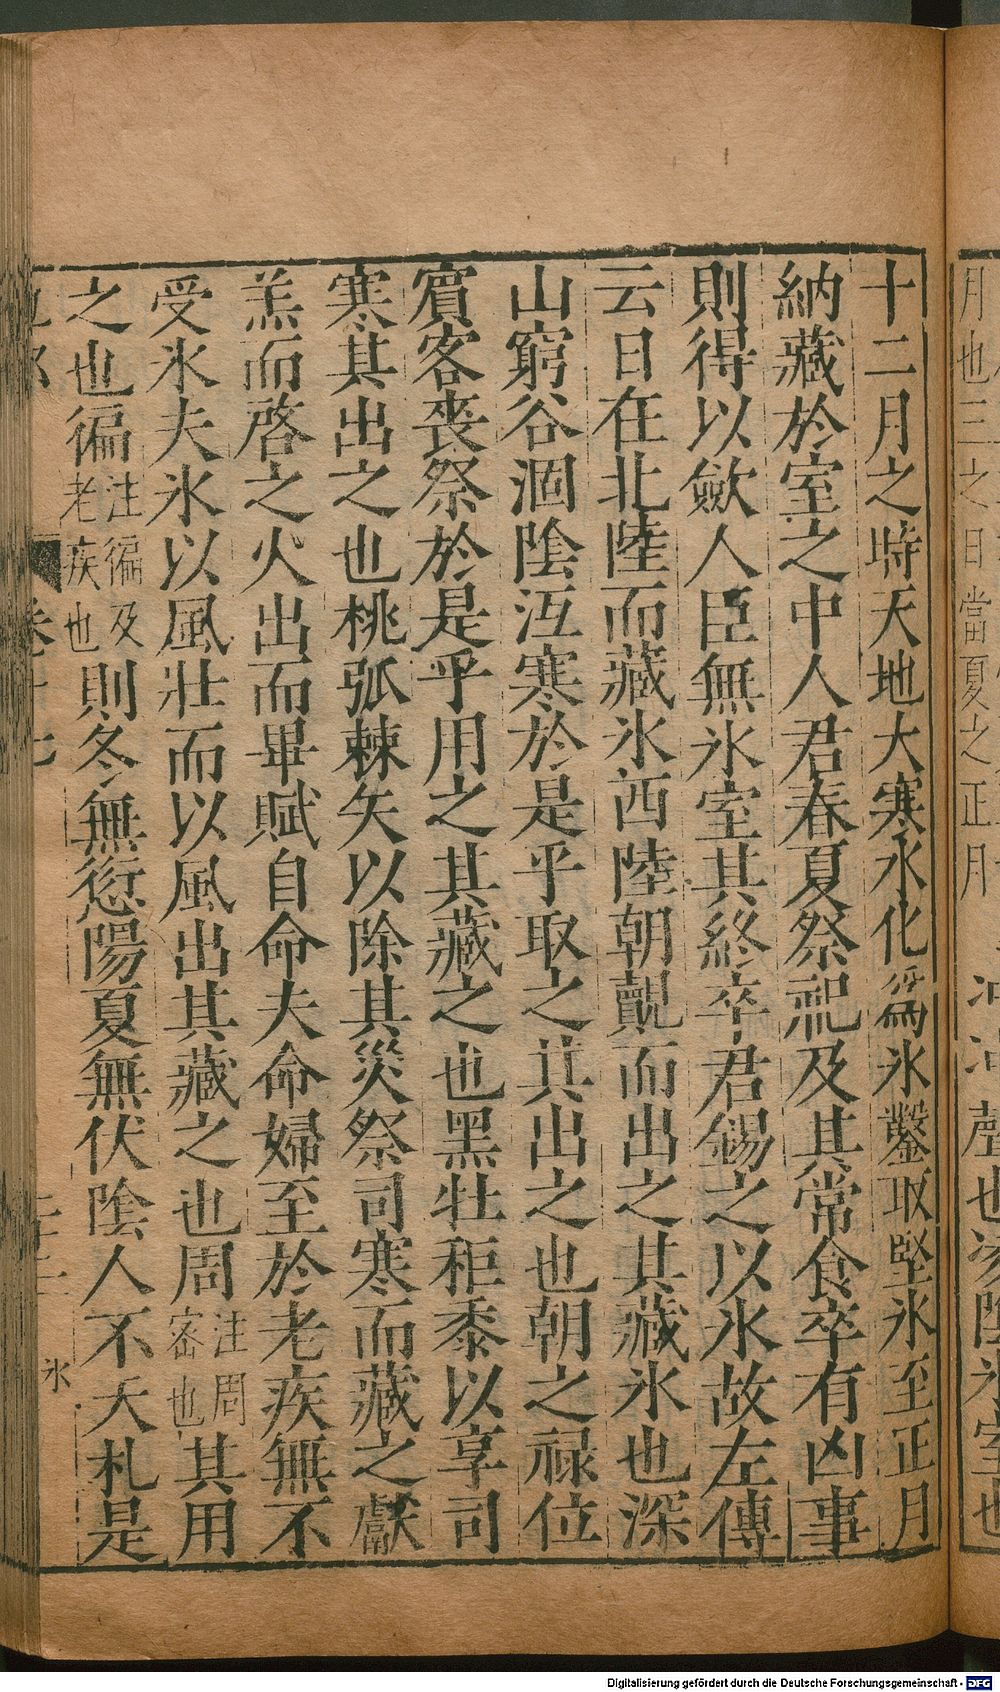 月也三之日當夏之正月 冲冲鑿也凌陰氷室也
十二月之時天地大寒水化爲氷鑿取堅氷至正月
納藏於室之中人君春夏祭祀及其常食卒有凶事
則得以歛人臣無氷室其終卒君錫之以氷故左傳
云日在北陸而藏氷西陸朝覿而出之其藏氷也深
山窮谷涸陰沍寒於是乎取之其出之也朝之禄位
賔客喪祭於是乎用之其藏之也黑牡秬黍以享司
寒其出之也桃弧棘矢以除其災祭司寒而藏之獻
羔而啓之火出而畢賦自命夫命婦至於老疾無不
受氷夫氷以風壯而以風出其藏之也周注周密也其用
之也徧注徧及老疾也則冬無愆陽夏無伏陰人不夭札是
氷
Digitalisierung gefördert durch die Deutsche Forschungsgemeinschaft - DFG